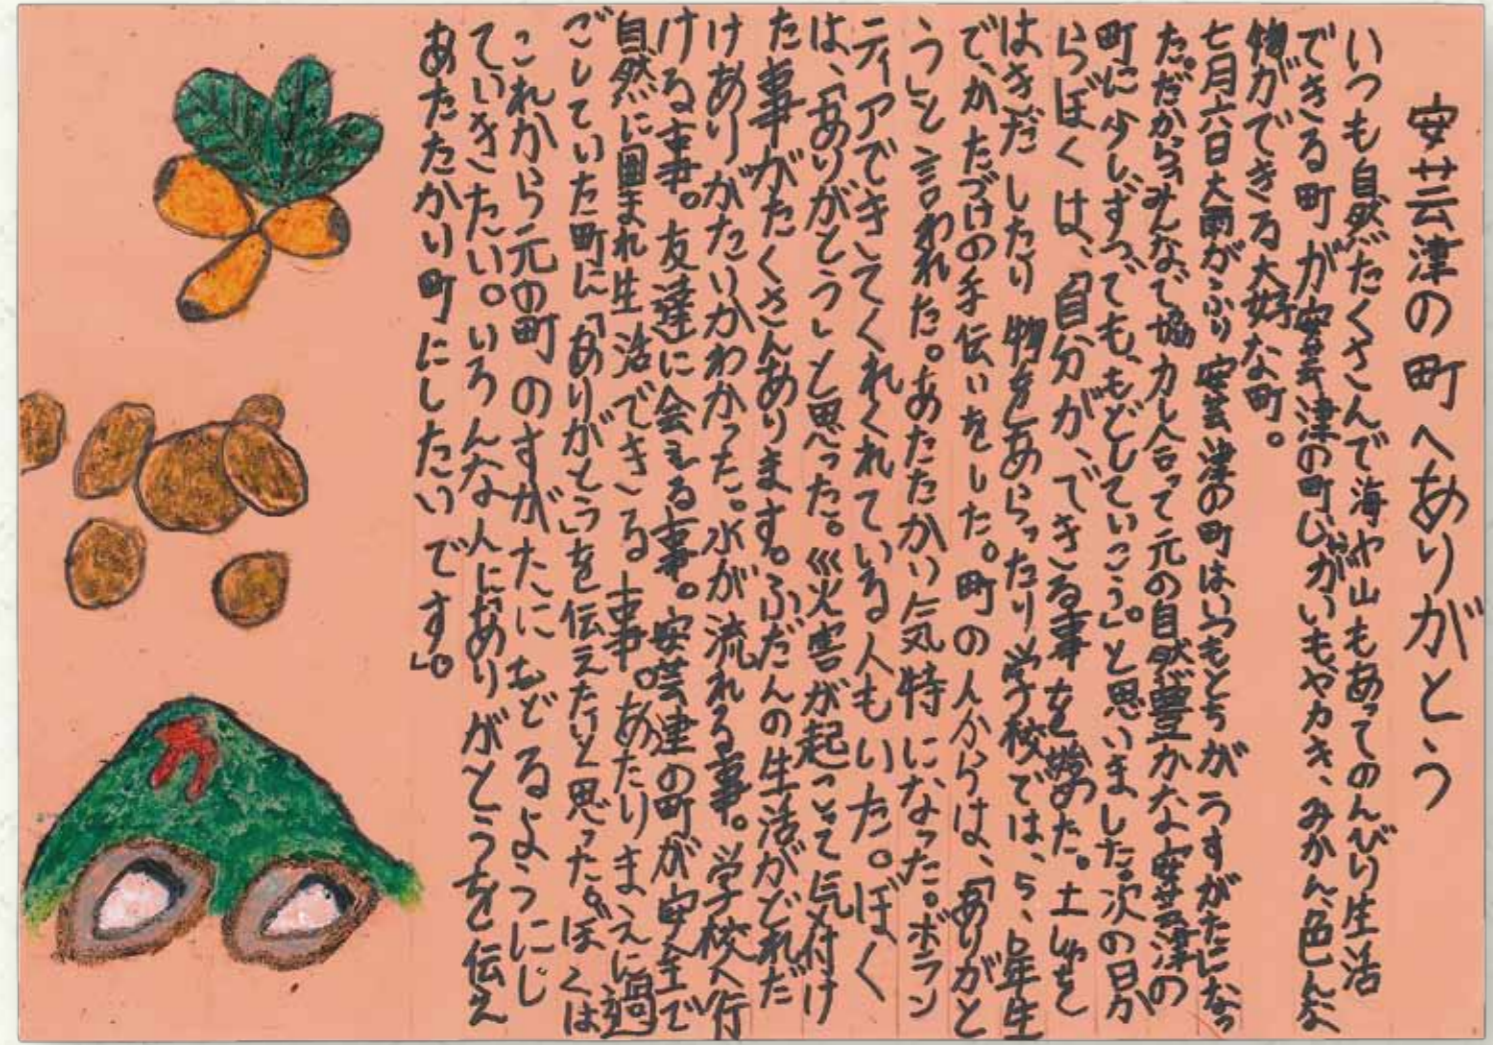 安芸津の町へありがとう
いつも自然がたくさんで海や山もあってのんびり生活
できる町が安芸津の町じゃがいもやカキ、みかん、色んな
物ができる大好な町。
七月六日大雨がふり安芸津の町はいつもとちがうすがたになっ
た。だからみんなで協力し合って元の自然豊かな安芸津の
町に少しずつでも、もどしていこう。」と思いました。次の日か
らぼくは、「自分が、できる事を始めた。土しゃを
はきだしたり物をあらったり学校では、5、6年生
で、かたづけの手伝いをした。町の人からは、「ありがと
う」と言われた。あたたかい気持になった。ボラン
ティアできてくれくれている人もいた。ぼく
は、「ありがとう」と思った。災害が起こって気付け
た事がたくさんあります。ふだんの生活がどれだ
けありがたいかわかった。水が流れる事。学校へ行
ける事。友達に会える事。安芸津の町が安全で
自然に囲まれ生活できる事。あたりまえに過
ごしていた町に「ありがとう」を伝えたいと思った。「ぼくは
これから元の町のすがたにもどるようにし
ていきたい。いろんな人にありがとうを伝え
あたたかい町にしたいです」。